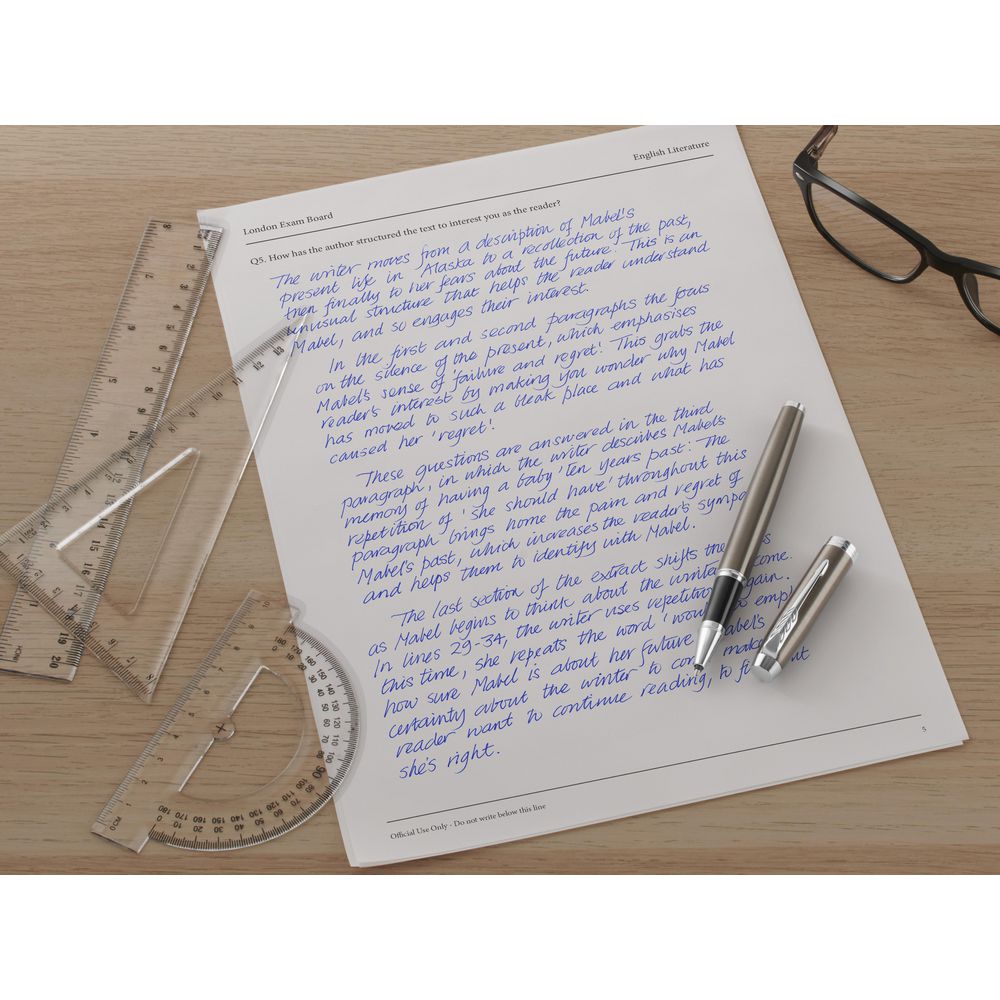 London Exam Board
English Literature
Q5. How has the author structured the text to interest you as the reader?
The writer moves from a description of Mabel's
present life in Alaska to a recollection of the past,
then finally to her fears about the future. This is an
unusual structure that helps the reader understand
Mabel, and so engages their interest.
In the first and second paragraphs the focus
on the silence of the present, which emphasises
Mabel's sense of 'failure and regret'. This grabs the
reader's interest by making you wonder why Mabel
has moved to such a bleak place and what has
caused her 'regret'.
These questions are answered in the third
paragraph, in which the writer describes Mabel's
memory of having a baby 'ten years past'. The
repetition of 'she should have' throughout this
paragraph brings home the pain and regret of
Mabel's past, which increases the reader's
and helps them to identify with Mabel.
The last section of the extract shifts the
as Mabel begins to think about the winter
In lines 29-34, the writer uses repetition again.
this time, she repeats the word 'would' to
how sure Mabel is about her future. Mabel's
certainty about the winter to come
reader want to continue reading, to
she's right.
5
Official Use Only - Do not write below this line